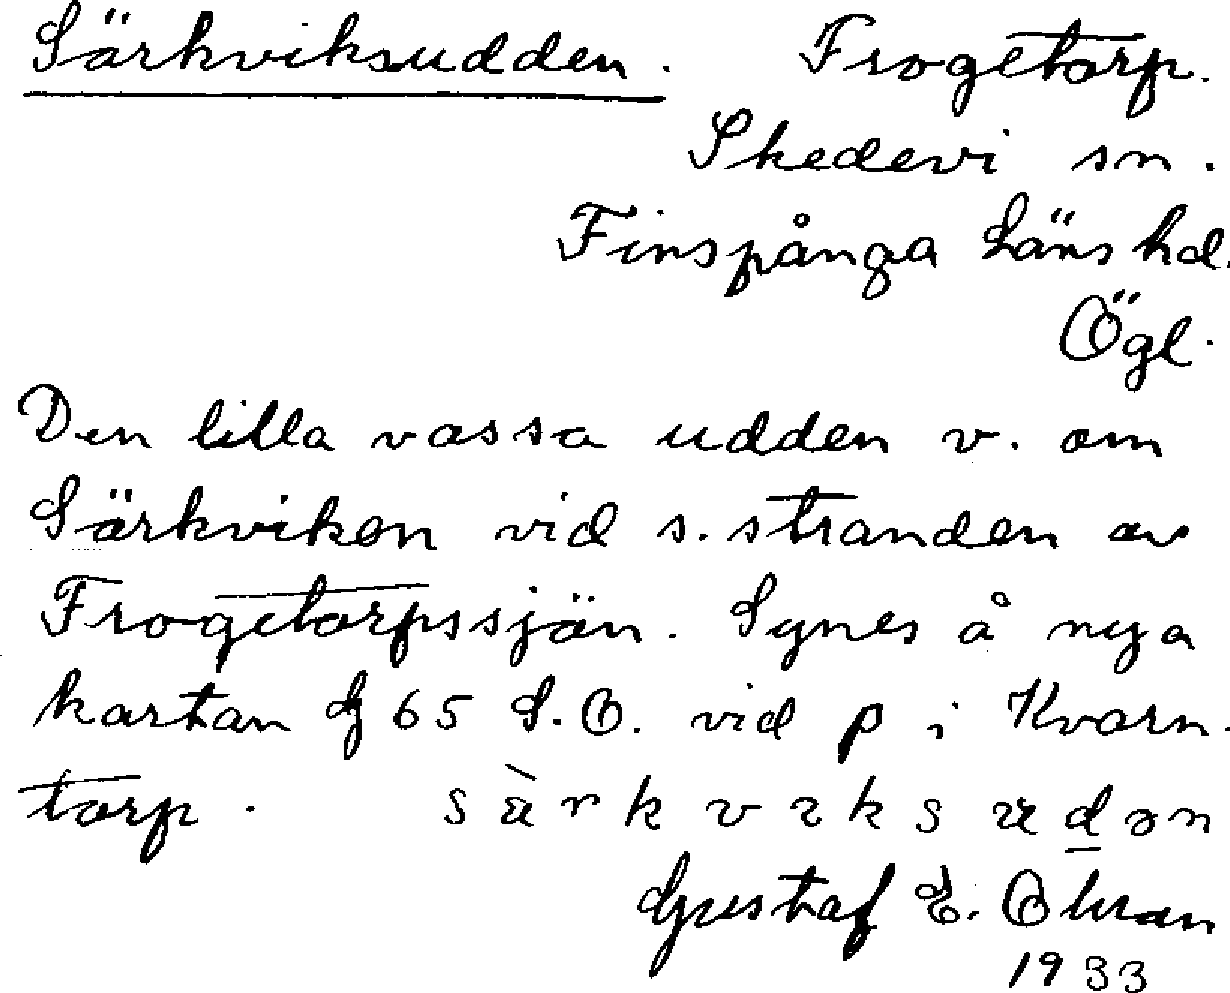 Särkviksudden. Frogetorp.
Skedevi sn.
Finspånga Läns hd.
Ögl.
Den lilla vassa udden v. om
Särkviken vid s. stranden av
Frogetorpssjön. Synes å nya
kartan G 65 S.O. vid p i Kvarn-
torp. särkviksudən
Gustaf E. Ohran
1933